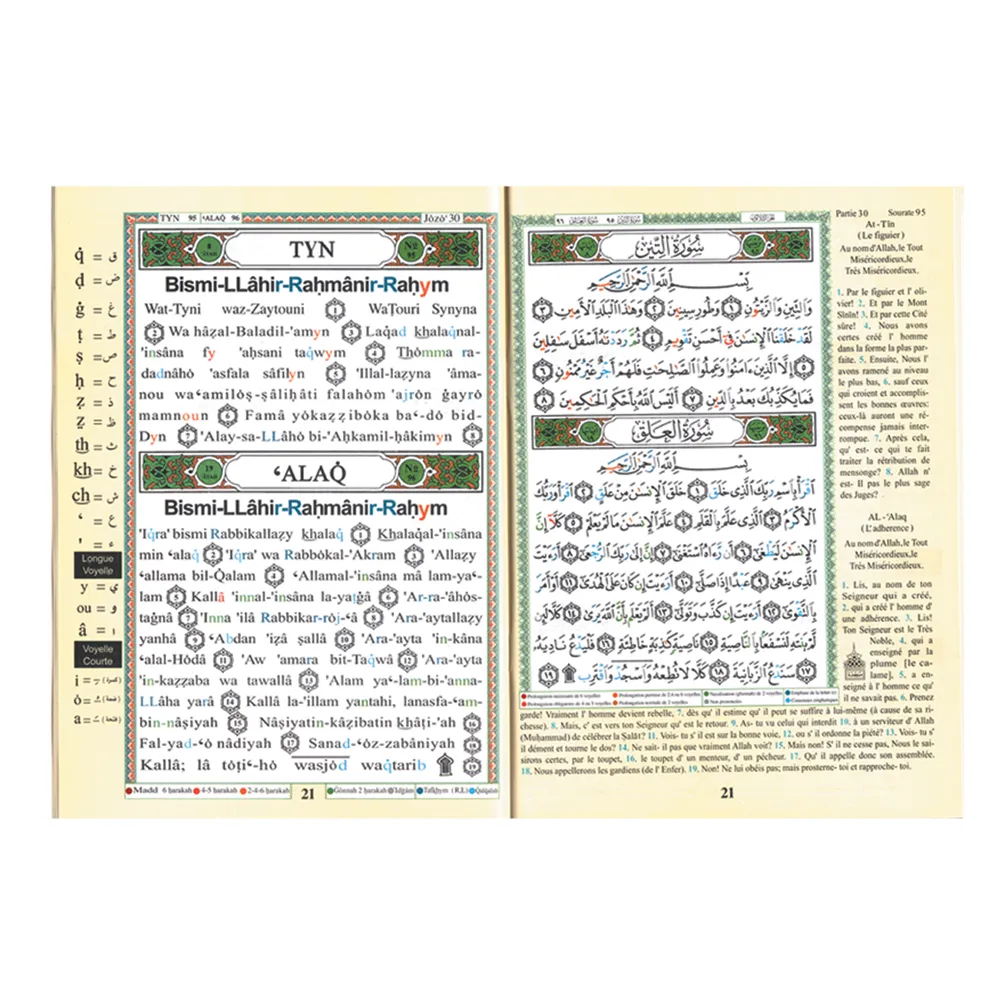 TYN 95 ʿALAQ̇ 96 Jôzô' 30
q̇ = ق
ḍ = ض
ġ = غ
ṭ = ط
ṣ = ص
ḥ = ح
ẓ = ذ
ẓ = ظ
th = ث
kh = خ
ch = ش
ʿ = ع
' = ء
Longue
Voyelle
y = ي
ou = و
â = ا
Voyelle
Courte
i =
ȯ =
a =
8 N:
95
TYN
Bismi-LLâhir-Raḥmânir-Raḥym
Wat-Tyni waz-Zaytouni 1 WaṬouri Synyna
2 Wa hâẓal-Baladil-'amyn 3 Laqad khalaq̇nal-
'insâna fy 'aḥsani taqwym 4 Thȯmma ra-
dadnâhȯ 'asfala sâfilyn 5 'Illal-laẓyna 'âma-
nou waʿamilȯṣ-ṣâliḥâti falahȯm 'ajrȯn ġayrȯ
mamnoun 6 Famâ yȯkaẓẓibȯka baʿ-dȯ bid-
Dyn 7 'Alay-sa-LLâhȯ bi-'Aḥkamil-ḥâkimyn 8
19 N:
96
ʿALAQ̇
Bismi-LLâhir-Raḥmânir-Raḥym
'Iq̇ra' bismi Rabbikallaẓy khalaq̇ 1 Khalaq̇al-'insâna
min ʿalaq̇ 2 'Iq̇ra' wa Rabbȯkal-'Akram 3 'Allaẓy
ʿallama bil-Q̇alam 4 ʿAllamal-'insâna mâ lam-yaʿ-
lam 5 Kallâ 'innal-'insâna la-yaṭġâ 6 'Ar-ra-'âhȯs-
taġnâ 7 'Inna 'ilâ Rabbikar-rȯj-ʿâ 8 'Ara-'aytallaẓy
yanhâ 9 ʿAbdan 'iẓâ ṣallâ 10 'Ara-'ayta 'in-kâna
ʿalal-Hȯdâ 11 'Aw 'amara bit-Taq̇wâ 12 'Ara-'ayta
'in-kaẓẓaba wa tawallâ 13 'Alam yaʿ-lam-bi-'anna-
LLâha yarâ 14 Kallâ la-'illam yantahi, lanasfaʿam-
bin-nâṣiyah 15 Nâṣiyatin-kâẓibatin khâṭi-'ah 16
Fal-yad-ʿȯ nâdiyah 17 Sanad-ʿȯz-zabâniyah 18
Kallâ; lâ tȯṭiʿ-hȯ wasjȯd waq̇tarib 19
Madd 6 ḥarakah 4-5 ḥarakah 2-4-6 ḥarakah
21
Ġonnah 2 ḥarakah 'Idġâm Tafkhym (R,L) Q̇alq̇alah
٩٦ سورة العلق ٩٥ سورة التين الجزء الثلاثون
سُورَةُ التِّينِ
بِسْمِ اللَّهِ الرَّحْمَٰنِ الرَّحِيمِ
وَالتِّينِ وَالزَّيْتُونِ ١ وَطُورِ سِينِينَ ٢ وَهَٰذَا الْبَلَدِ الْأَمِينِ ٣
لَقَدْ خَلَقْنَا الْإِنسَٰنَ فِي أَحْسَنِ تَقْوِيمٍ ٤ ثُمَّ رَدَدْنَٰهُ أَسْفَلَ سَٰفِلِينَ
٥ إِلَّا الَّذِينَ ءَامَنُوا وَعَمِلُوا الصَّٰلِحَٰتِ فَلَهُمْ أَجْرٌ غَيْرُ مَمْنُونٍ ٦
فَمَا يُكَذِّبُكَ بَعْدُ بِالدِّينِ ٧ أَلَيْسَ اللَّهُ بِأَحْكَمِ الْحَٰكِمِينَ ٨
سُورَةُ العَلَقِ
بِسْمِ اللَّهِ الرَّحْمَٰنِ الرَّحِيمِ
اقْرَأْ بِاسْمِ رَبِّكَ الَّذِي خَلَقَ ١ خَلَقَ الْإِنسَٰنَ مِنْ عَلَقٍ ٢ اقْرَأْ وَرَبُّكَ
الْأَكْرَمُ ٣ الَّذِي عَلَّمَ بِالْقَلَمِ ٤ عَلَّمَ الْإِنسَٰنَ مَا لَمْ يَعْلَمْ ٥ كَلَّا إِنَّ
الْإِنسَٰنَ لَيَطْغَىٰ ٦ أَن رَّءَاهُ اسْتَغْنَىٰ ٧ إِنَّ إِلَىٰ رَبِّكَ الرُّجْعَىٰ ٨ أَرَءَيْتَ
الَّذِي يَنْهَىٰ ٩ عَبْدًا إِذَا صَلَّىٰ ١٠ أَرَءَيْتَ إِن كَانَ عَلَى الْهُدَىٰ ١١ أَوْ أَمَرَ
بِالتَّقْوَىٰ ١٢ أَرَءَيْتَ إِن كَذَّبَ وَتَوَلَّىٰ ١٣ أَلَمْ يَعْلَم بِأَنَّ اللَّهَ يَرَىٰ ١٤ كَلَّا لَئِن
لَّمْ يَنتَهِ لَنَسْفَعًا بِالنَّاصِيَةِ ١٥ نَاصِيَةٍ كَٰذِبَةٍ خَاطِئَةٍ ١٦ فَلْيَدْعُ نَادِيَهُ
١٧ سَنَدْعُ الزَّبَانِيَةَ ١٨ كَلَّا لَا تُطِعْهُ وَاسْجُدْ وَاقْتَرِب ١٩
Partie 30 Sourate 95
At-Tîn
(Le figuier)
Au nom d'Allah, le Tout
Miséricordieux, le
Très Miséricordieux.
1. Par le figuier et l' oli-
vier! 2. Et par le Mont
Sînîn! 3. Et par cette Cité
sûre! 4. Nous avons
certes créé l' homme
dans la forme la plus par-
faite. 5. Ensuite, Nous l'
avons ramené au niveau
le plus bas, 6. sauf ceux
qui croient et accomplis-
sent les bonnes œuvres:
ceux-là auront une ré-
compense jamais inter-
rompue. 7. Après cela,
qu' est- ce qui te fait
traiter la rétribution de
mensonge? 8. Allah n'
est- Il pas le plus sage
des Juges?
AL-'Alaq
(L' adherence)
Au nom d'Allah, le Tout
Miséricordieux, le
Très Miséricordieux.
1. Lis, au nom de ton
Seigneur qui a créé,
2. qui a créé l' homme d'
une adhérence. 3. Lis!
Ton Seigneur est le Très
Noble, 4. qui a
enseigné par la
plume [le ca-
lame], 5. a en-
seigné à l' homme ce qu'
il ne savait pas. 6. Prenez
garde! Vraiment l' homme devient rebelle, 7. dès qu' il estime qu' il peut se suffire à lui-même (à cause de sa ri-
chesse). 8. Mais, c' est vers ton Seigneur qu' est le retour. 9. As- tu vu celui qui interdit 10. à un serviteur d' Allah
(Muḥammad) de célébrer la Ṣalât? 11. Vois- tu s' il est sur la bonne voie, 12. ou s' il ordonne la piété? 13. Vois- tu s'
il dément et tourne le dos? 14. Ne sait- il pas que vraiment Allah voit? 15. Mais non! S' il ne cesse pas, Nous le sai-
sirons certes, par le toupet, 16. le toupet d' un menteur, d' un pécheur. 17. Qu' il appelle donc son assemblée.
18. Nous appellerons les gardiens (de l' Enfer). 19. Non! Ne lui obéis pas; mais prosterne- toi et rapproche- toi.
21